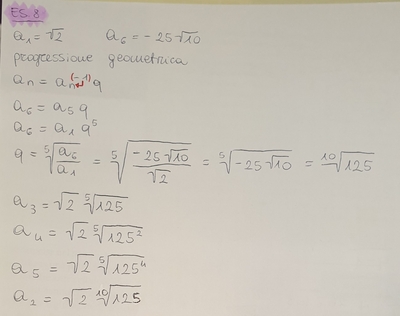 ES. 8
a₁ = √2 a₆ = - 25√10
progressione geometrica
aₙ = aₙ₍₋₁₎ q
a₆ = a₅ q
a₆ = a₁ q⁵
q = ⁵√(a₆/a₁) = ⁵√(-25√10/√2) = ⁵√(-25√10) = ¹⁰√125
a₃ = √2 ⁵√125
a₄ = √2 ⁵√125²
a₅ = √2 ⁵√125⁴
a₂ = √2 ¹⁰√125